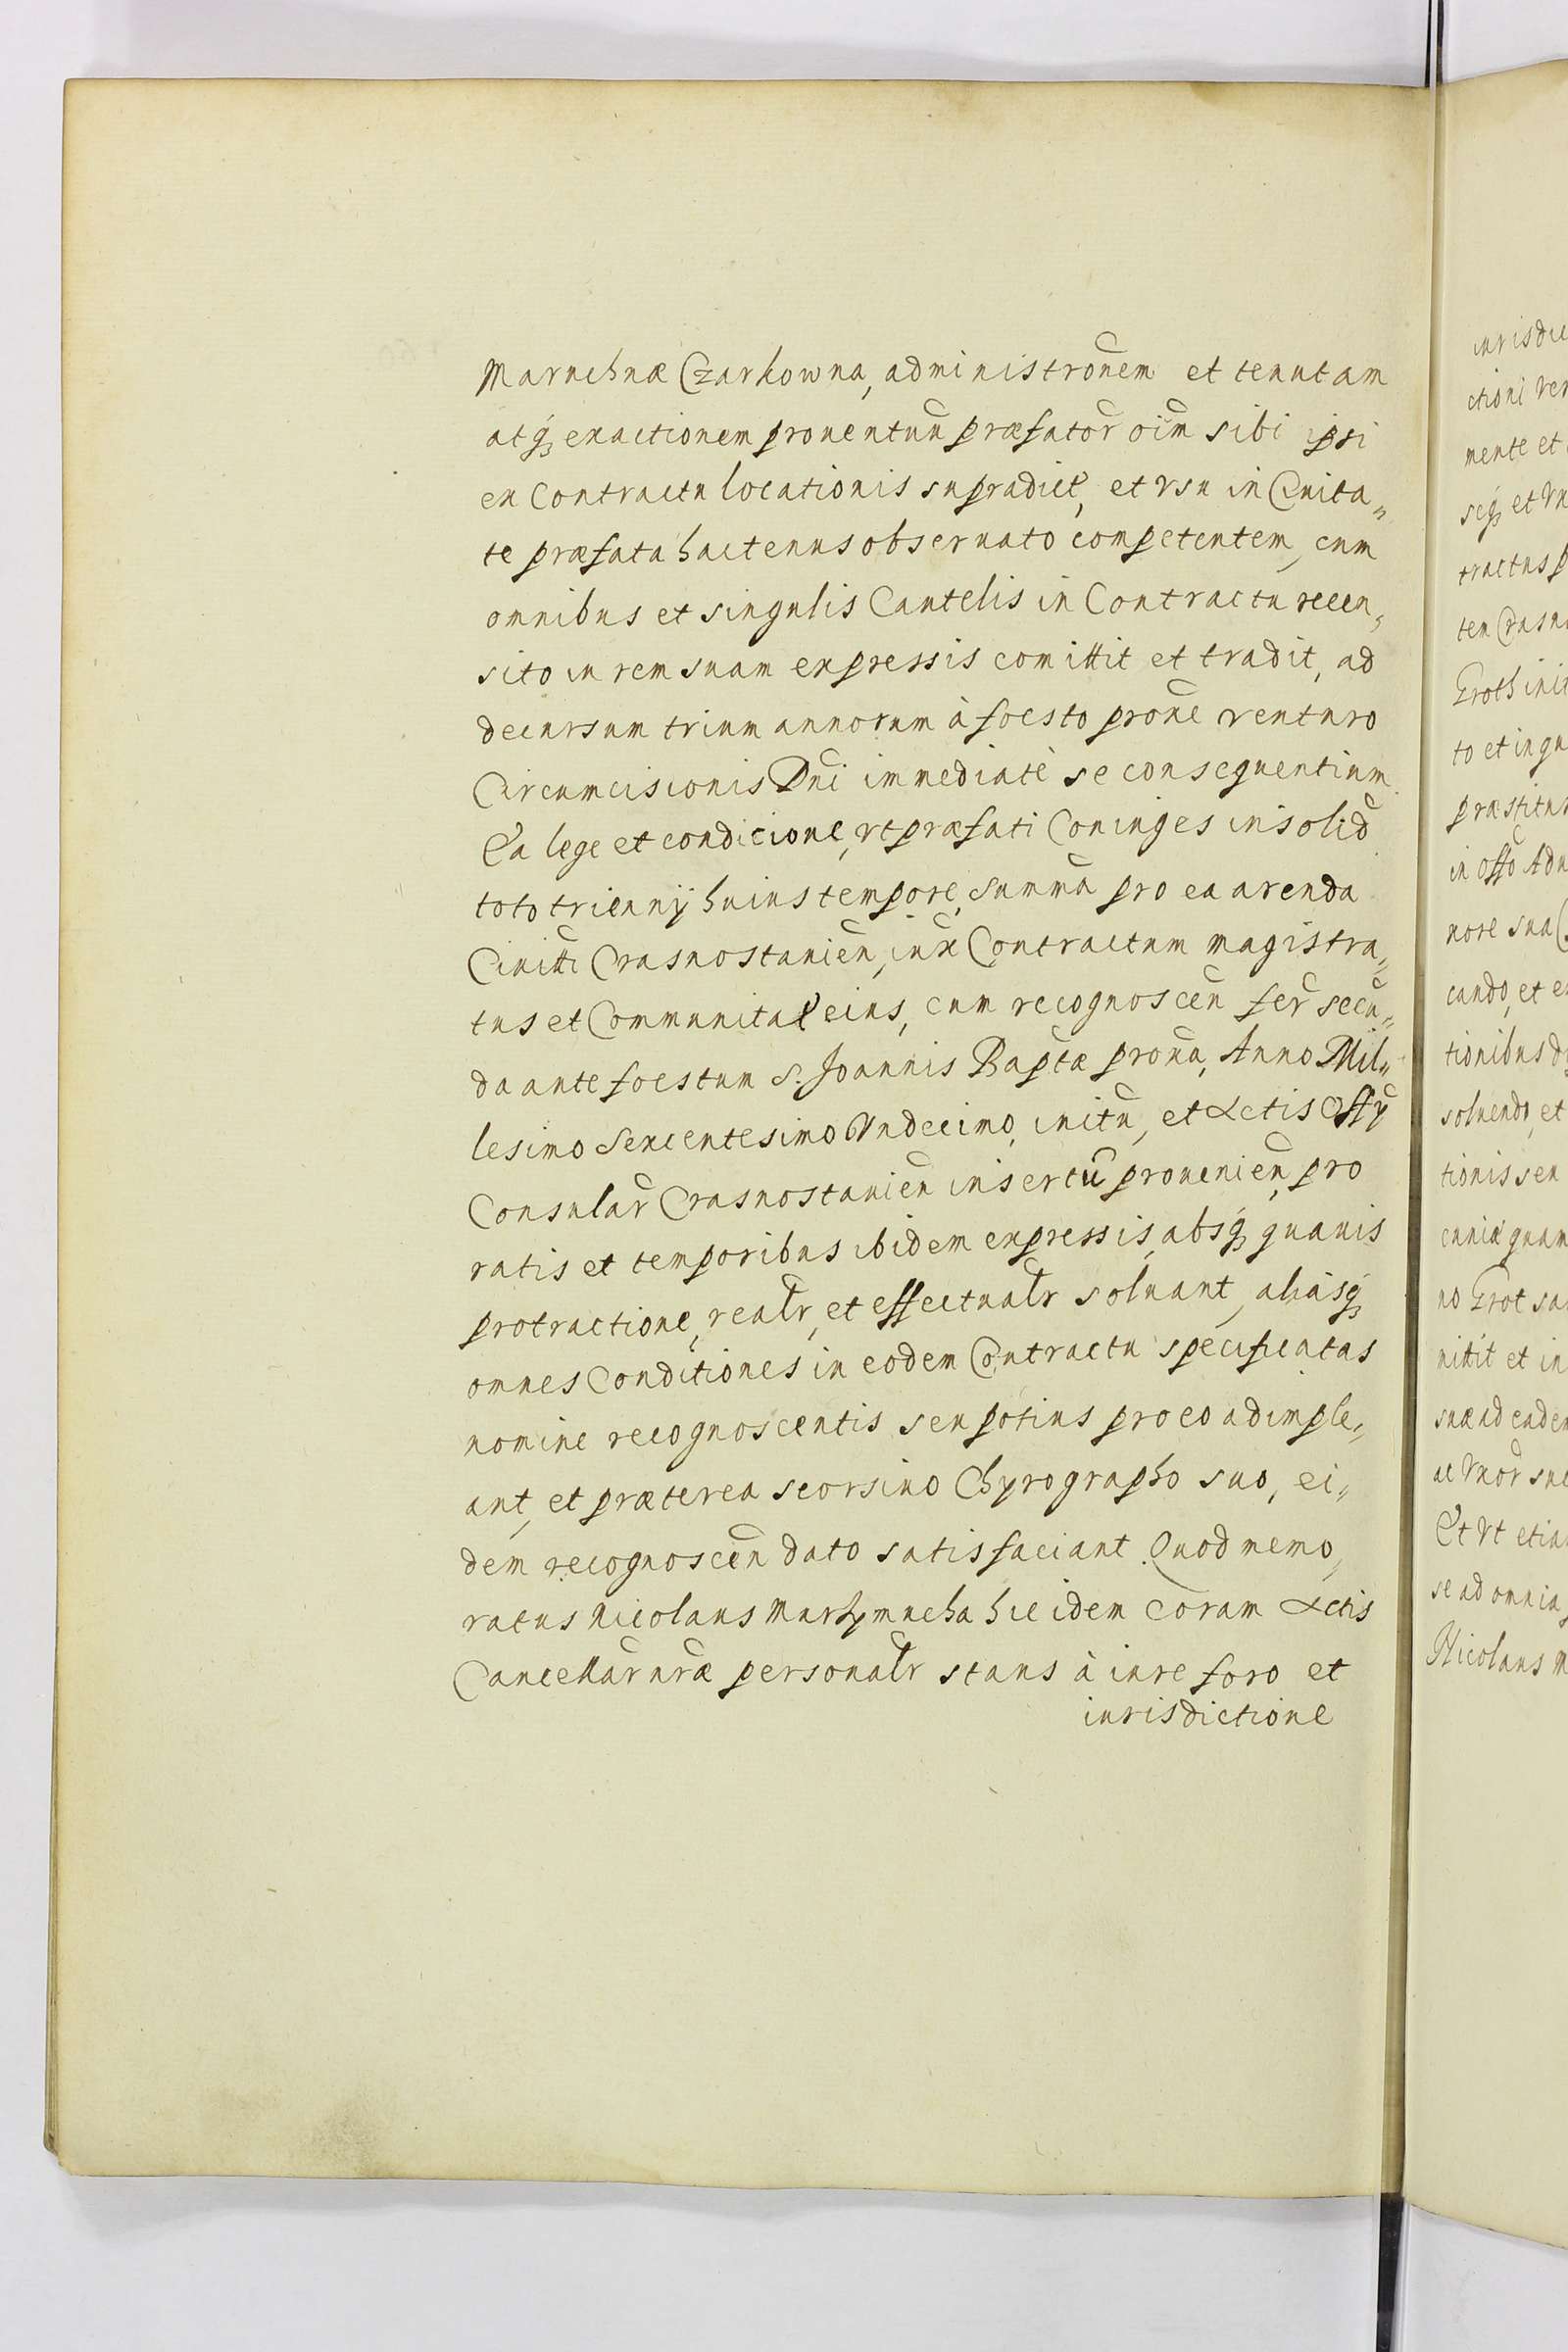 Maruchnæ Czarkowna, administrõnem et tenutam
atq₃ exactionem prouentuũ præfator̃ oĩm sibi ipsi
ex Contractu locationis supradict̃, et vsu in Ciuita„
te præfata hactenus obseruato competentem, cum
omnibus et singulis Cautelis in Contractu recen„
sito in rem suam expressis comittit et tradit, ad
decursum trium annorum à foesto prox̃e venturo
Circumcisionis Dñi immediatè se consequentium.
Ea lege et condicione, vt præfati Coniuges insolid̃
toto triennÿ huius tempore, summã pro ea arenda
Ciuitti Crasnostauieñ, iux̃ Contractum magistra„
tus et Communitat̃ eius, cum recognosceñ fer̃ secũ„
da ante foestum S. Joannis Bapt̃æ prox̃a, Anno Mil„
lesimo Sexcentesimo Vndecimo, initũ, et Actis Offÿ
Consular̃ Crasnostauieñ insertũ prouenieñ, pro
ratis et temporibus ibidem expressis, absq₃ quauis
protractione, realr̃, et effectualr̃ soluant, aliasq₃
omnes Conditiones in eodem Contractu specificatas
nomine recognoscentis seu potius pro eo adimple„
ant, et præterea seorsiuo Chyrographo suo, ei„
dem recognosceñ dato satisfaciant. Quod memo„
ratus Nicolaus Murzymucha hic idem Coram Actis
Cancellar̃ nr̃æ personalr̃ stans à iure foro et
iurisdictione
ctioni
mente et
seq₃ et
to et
in Offõ
cando, et
tionibus
soluendo, et
tionis seu
no Grot
nittit et in
Et Vt etiam
se ad omnia
Nicolaus